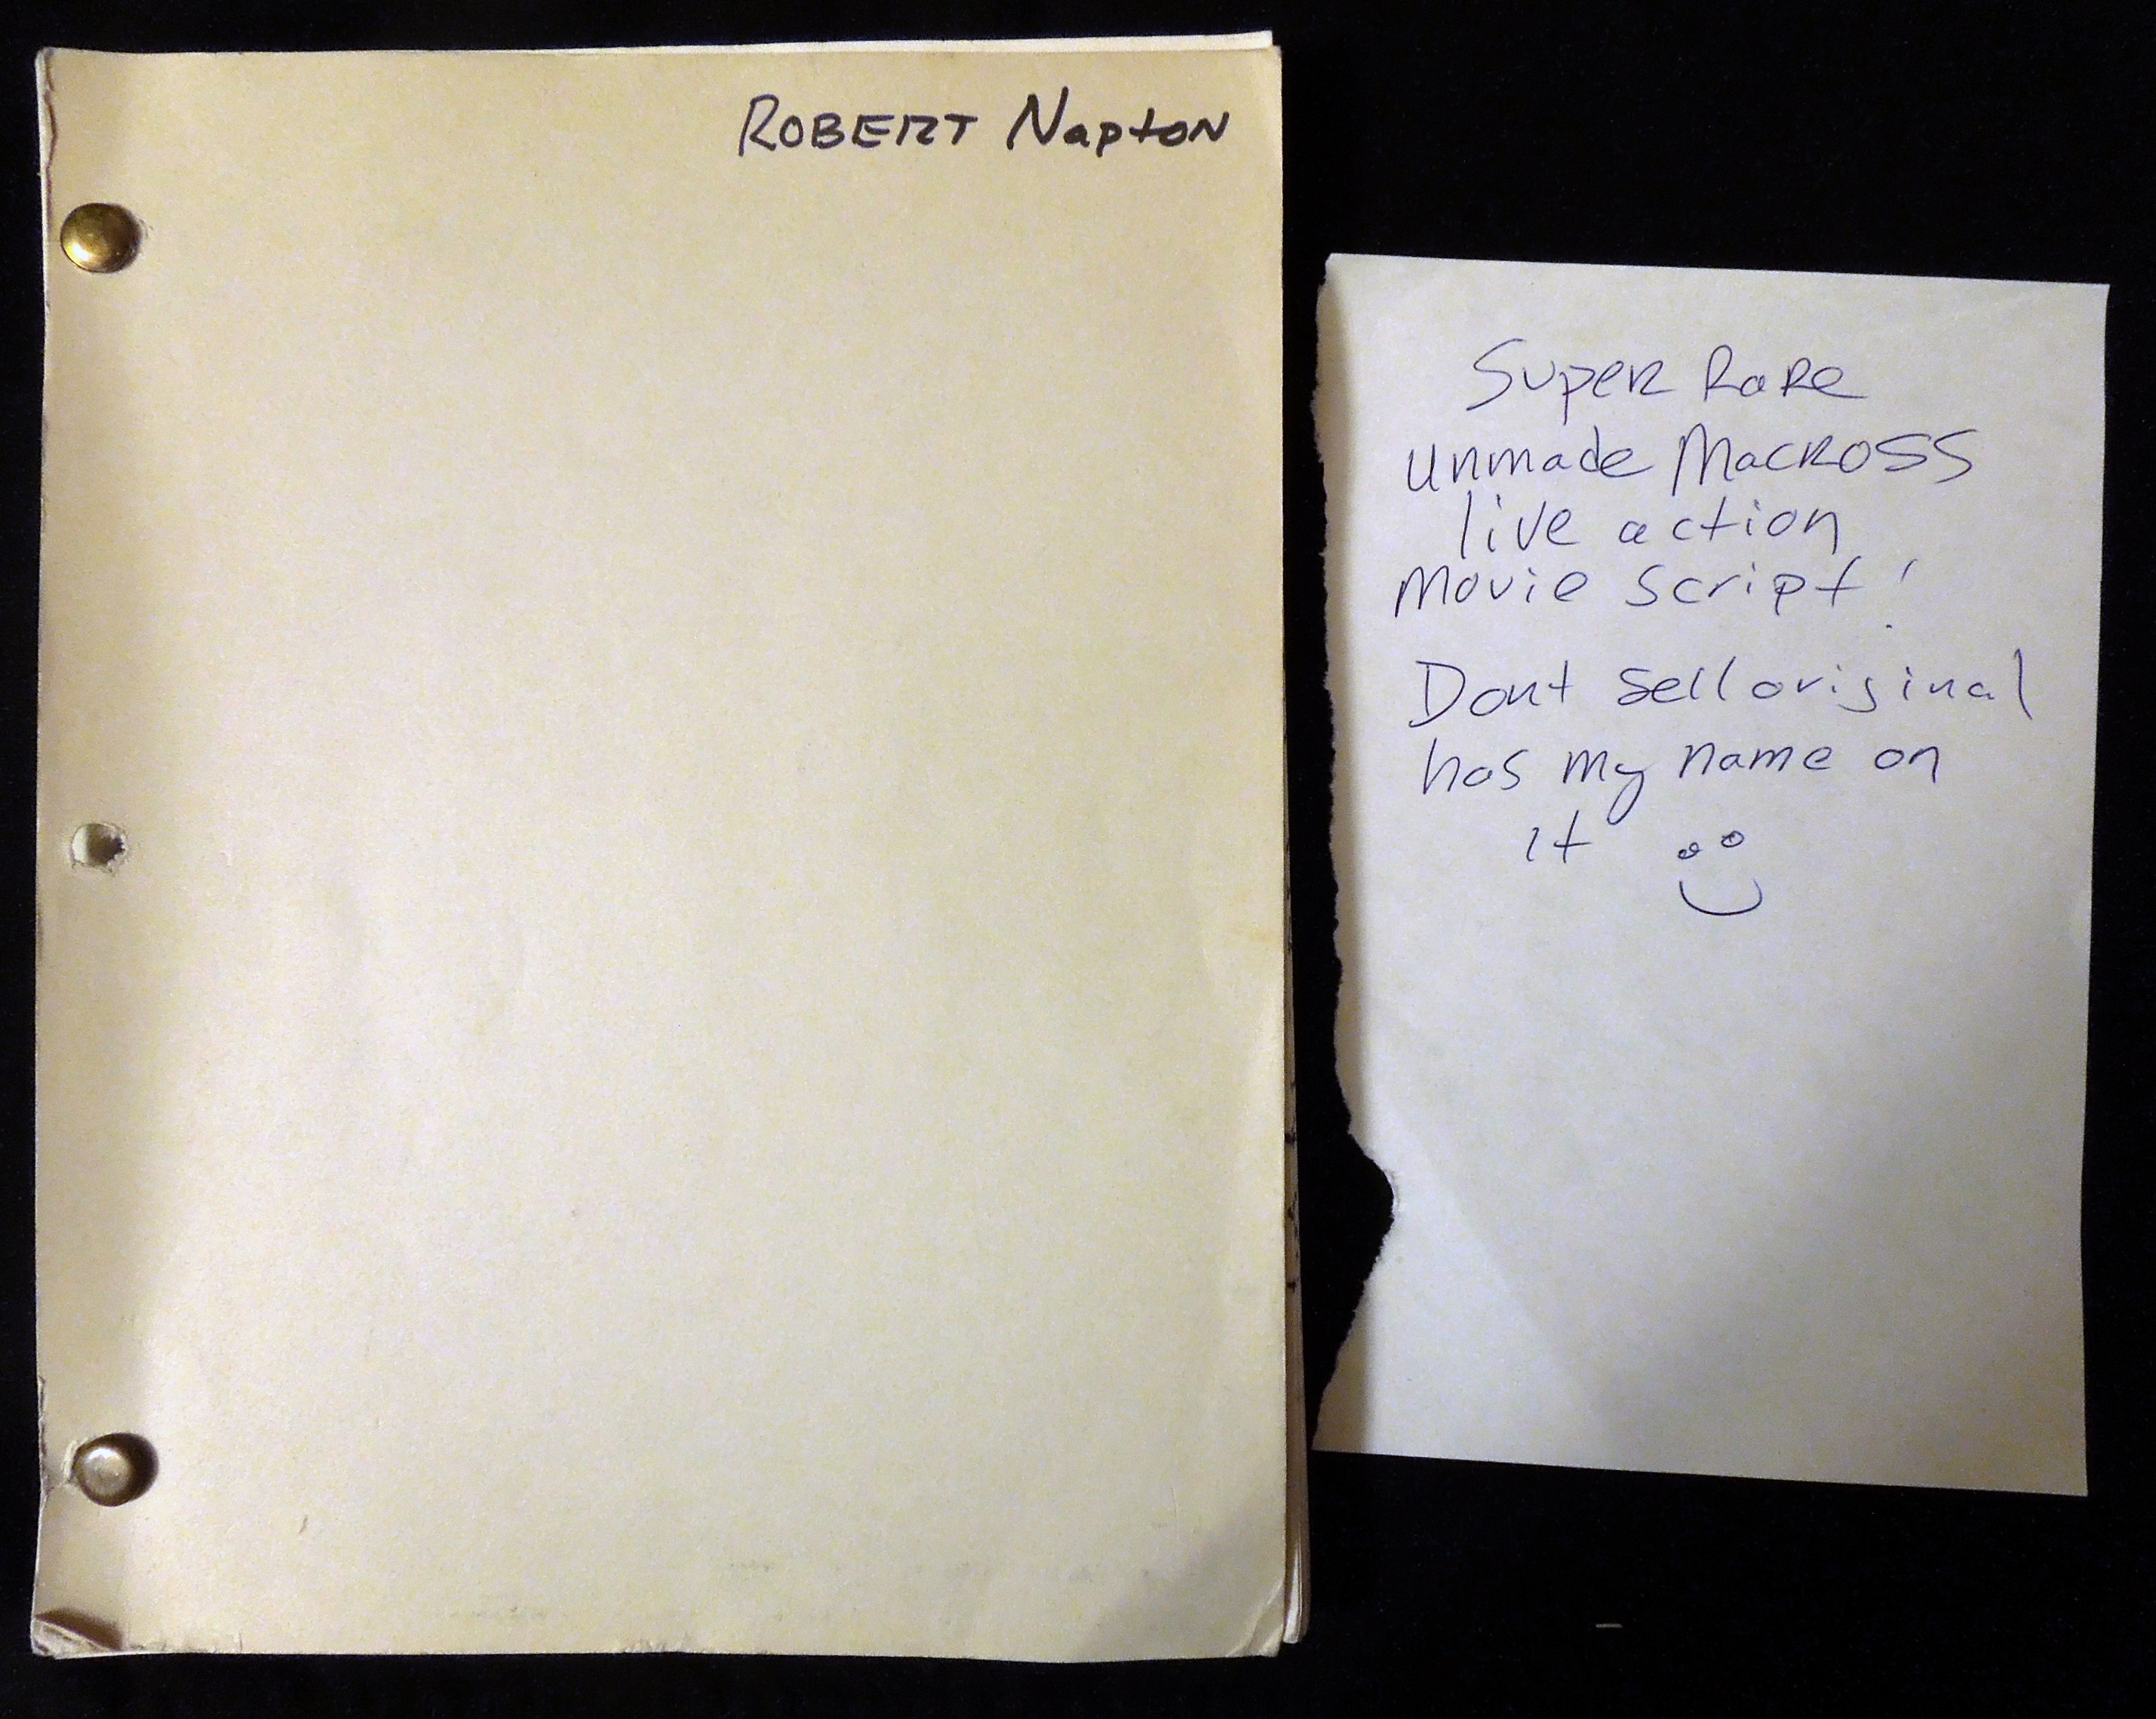 ROBERT Napton
Super Rare
unmade Macross
live action
movie script!
Dont sell original
has my name on
it